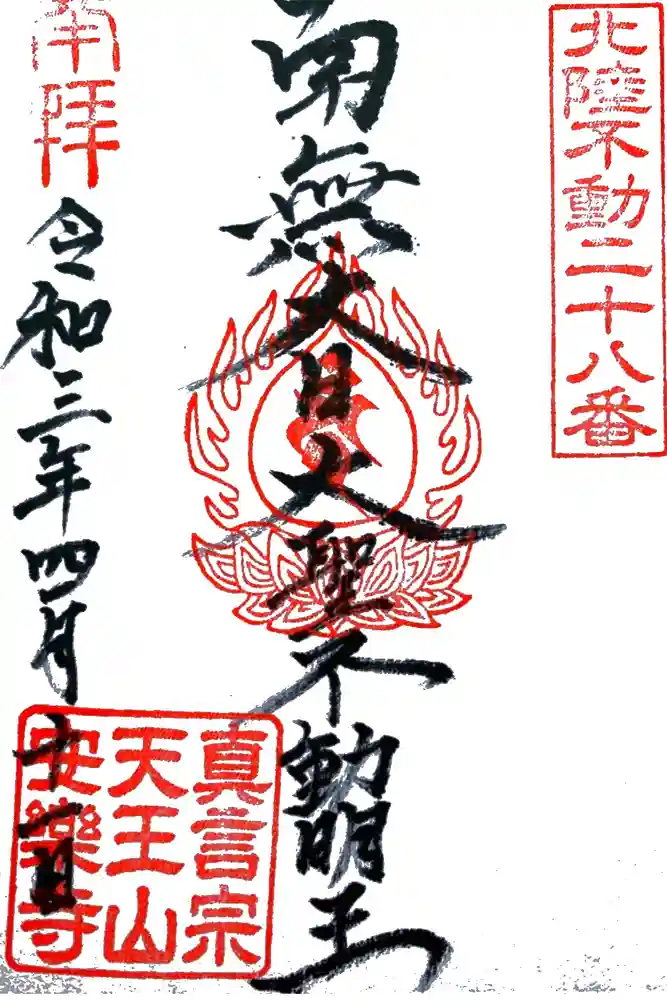 北陸不動二十八番
南無大日大聖不動明王
南拝
令和三年四月十一日
真言宗
天王山
安樂寺